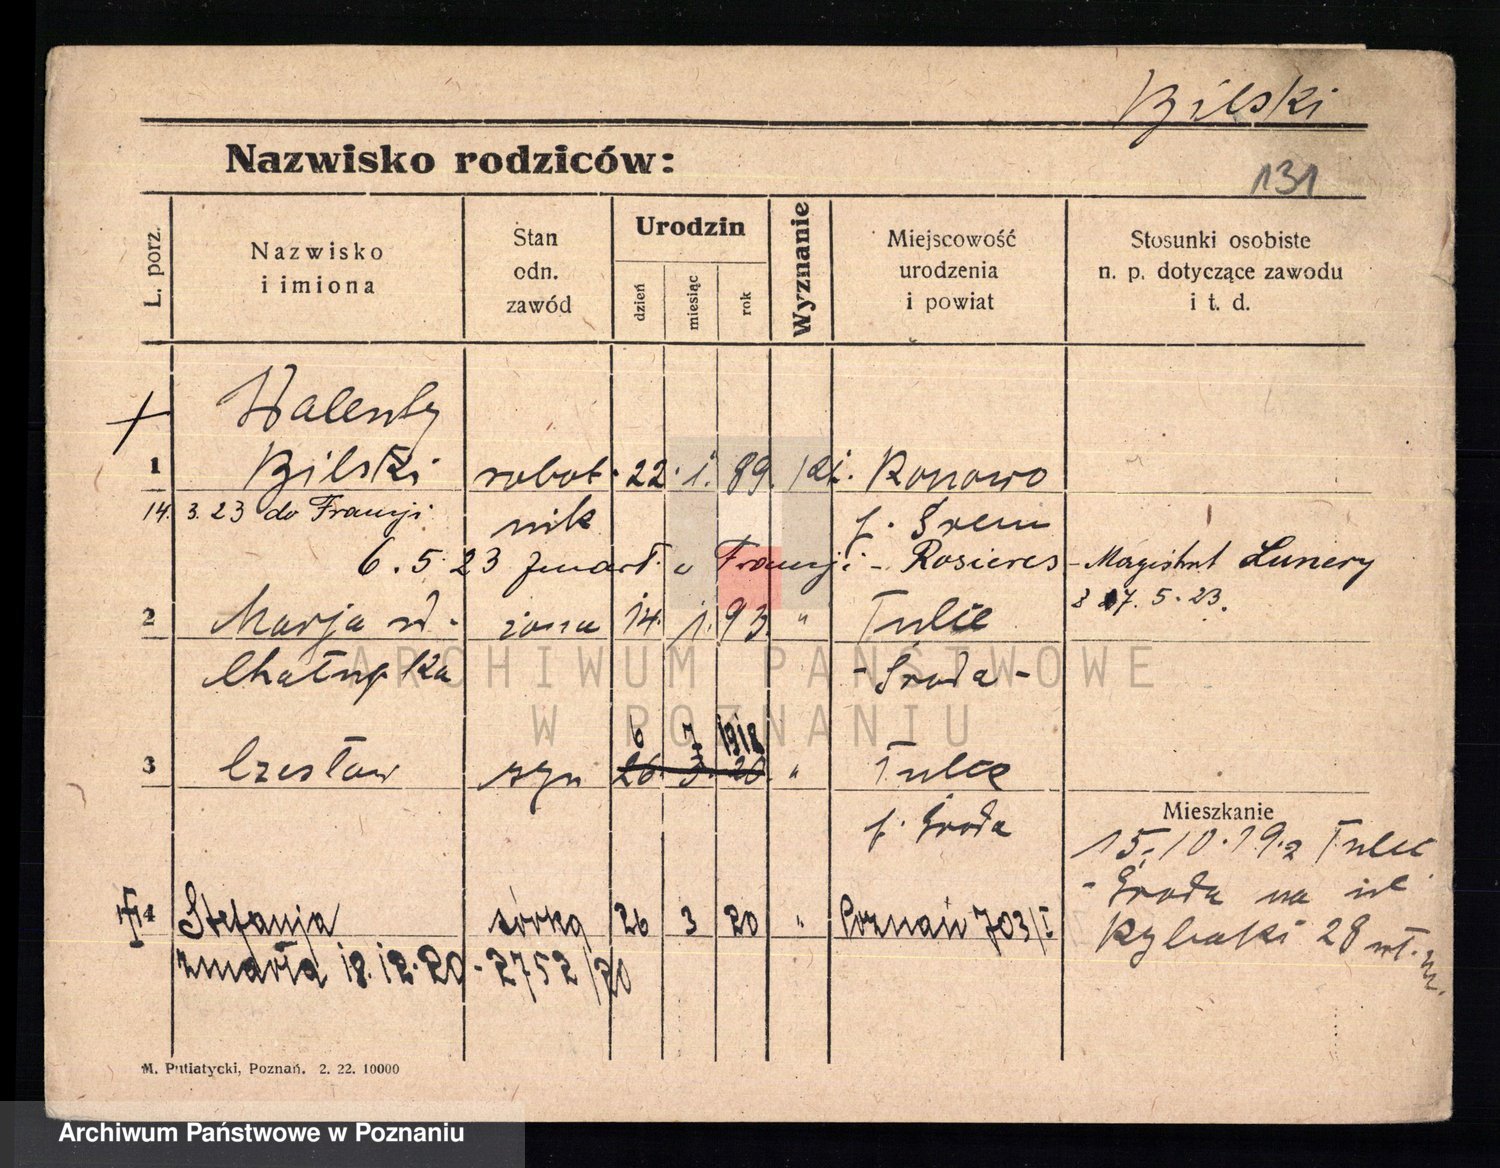 Bilski
Nazwisko rodziców:
131
L. porz.
Nazwisko
i imiona
Stan
odn.
zawód
Urodzin
dzień
miesiąc
rok
Wyznanie
Miejscowość
urodzenia
i powiat
Stosunki osobiste
n. p. dotyczące zawodu
i t. d.
Walenty
1 Bilski robot- 22. 1. 89. Konowo
14. 3. 23 do Francji nik Śrem
6. 5. 23 zmarł w Francji - Rosieres - Magistrat Lunery
17. 5. 23.
2 Marja żona 14. 1. 93. " Tulce
Chałupka - Środa -
6 7 1918
3 Czesław syn 26. 3. 20. " Tulce
p. Środa
Mieszkanie
15. 10. 19. z Tulce
- Środa na ul.
Rybaki 28
4 Stefanja córka 26 3 20 " Poznań 703/I
zmarła 18. 12. 20 - 2752/20
M. Putiatycki, Poznań. 2. 22. 10000
ARCHIWUM PAŃSTWOWE
W POZNANIU
Archiwum Państwowe w Poznaniu